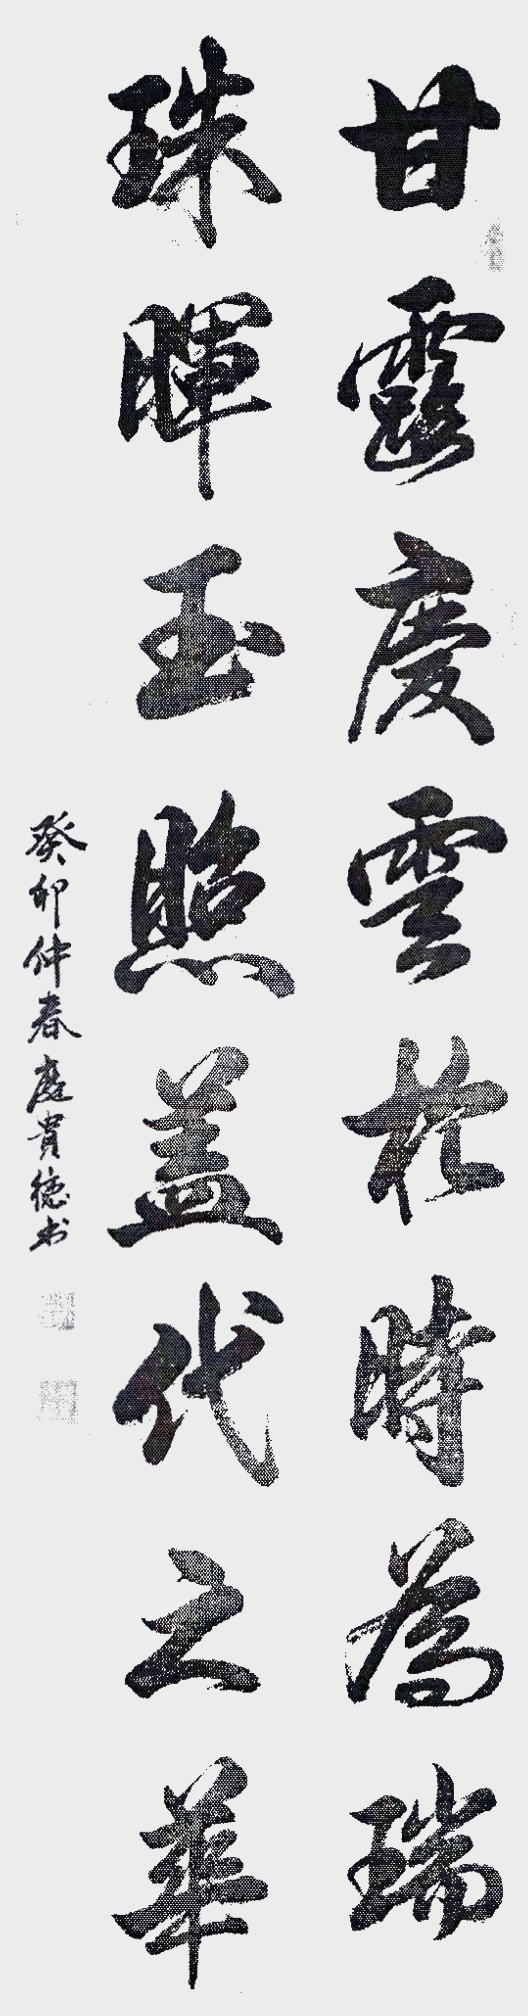 甘露慶雲於時為瑞
珠暉玉照盖代之華
癸卯仲春庭貴德书